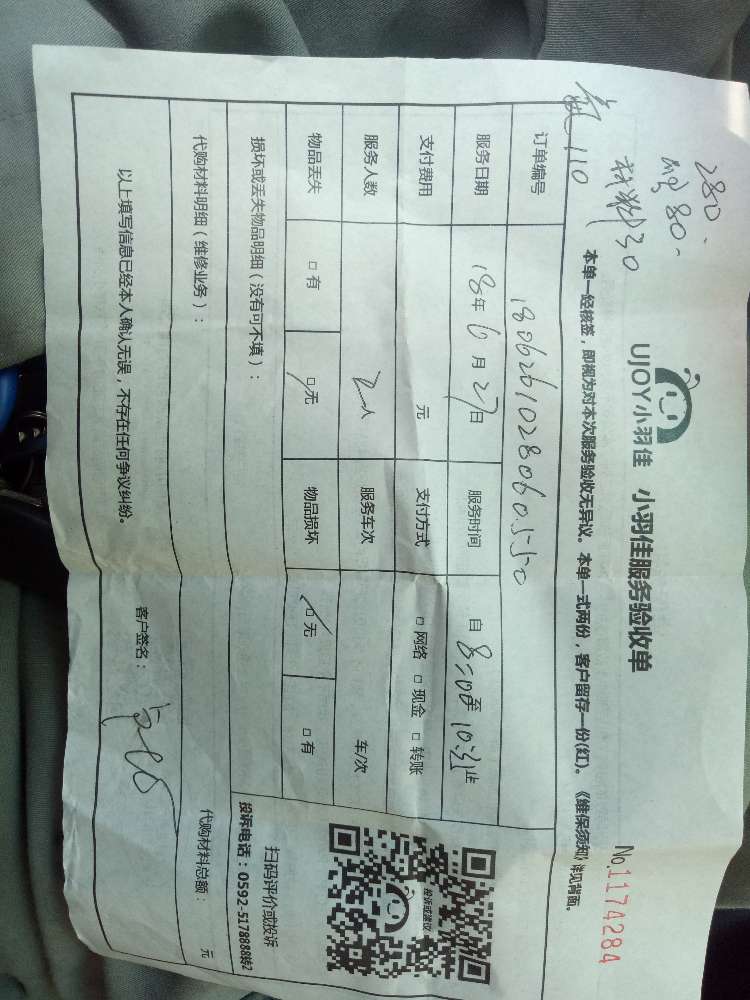 280.
80.
材料30
110
UJOY小羽佳 小羽佳服务验收单
No.1174284
本单一经核签，即视为对本次服务验收无异议。本单一式两份，客户留存一份(红)。《维保须知》详见背面。
订单编号 180626102806060550
服务日期 18年6月27日 服务时间 自8:00至10:31止
支付费用 元 支付方式 □网络 □现金 □转账
服务人数 2人 服务车次 车/次
物品丢失 □有 □无 物品损坏 □无 □有
损坏或丢失物品明细（没有可不填）：
代购材料明细（维修业务）： 代购材料总额： 元
以上填写信息已经本人确认无误，不存在任何争议纠纷。 客户签名：
投诉或建议
扫码评价或投诉
投诉电话：0592-5178888转2